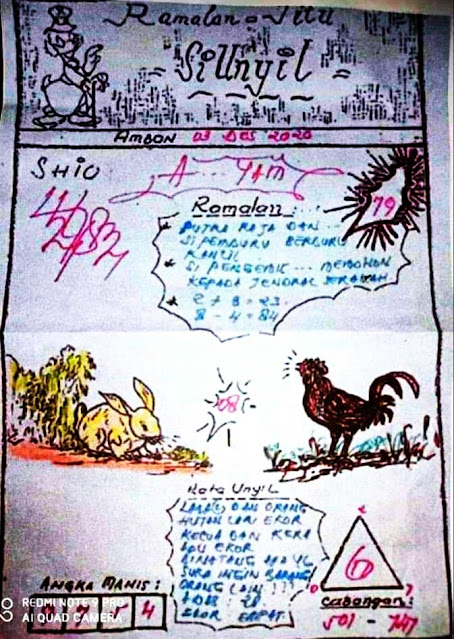 Ramalan - Jitu
= SiUnyil =
AMBON 03 DES 2020
SHIO
A... YAM
79
Ramalan:
* PUTRA RAJA DAN...
SI PEMBURU BERBURU
KANCIL.
* SI PENGEMIS... MEMOHON
KEPADA JENDRAL
* 2 + 8 = 23.
8 - 4 = 84
08
Kata Unyil
DAN ORANG
HUTAN CARI EKOR
KEDUA DAN KERA
ADU EKOR
BINATANG APA YG
SUKA INGIN BARANG
ORANG LAIN ???
EKOR EMPAT
6
0 7
ANGKA MANIS:
4
Cabangan:
501 - 747
REDMI NOTE 9 PRO
AI QUAD CAMERA